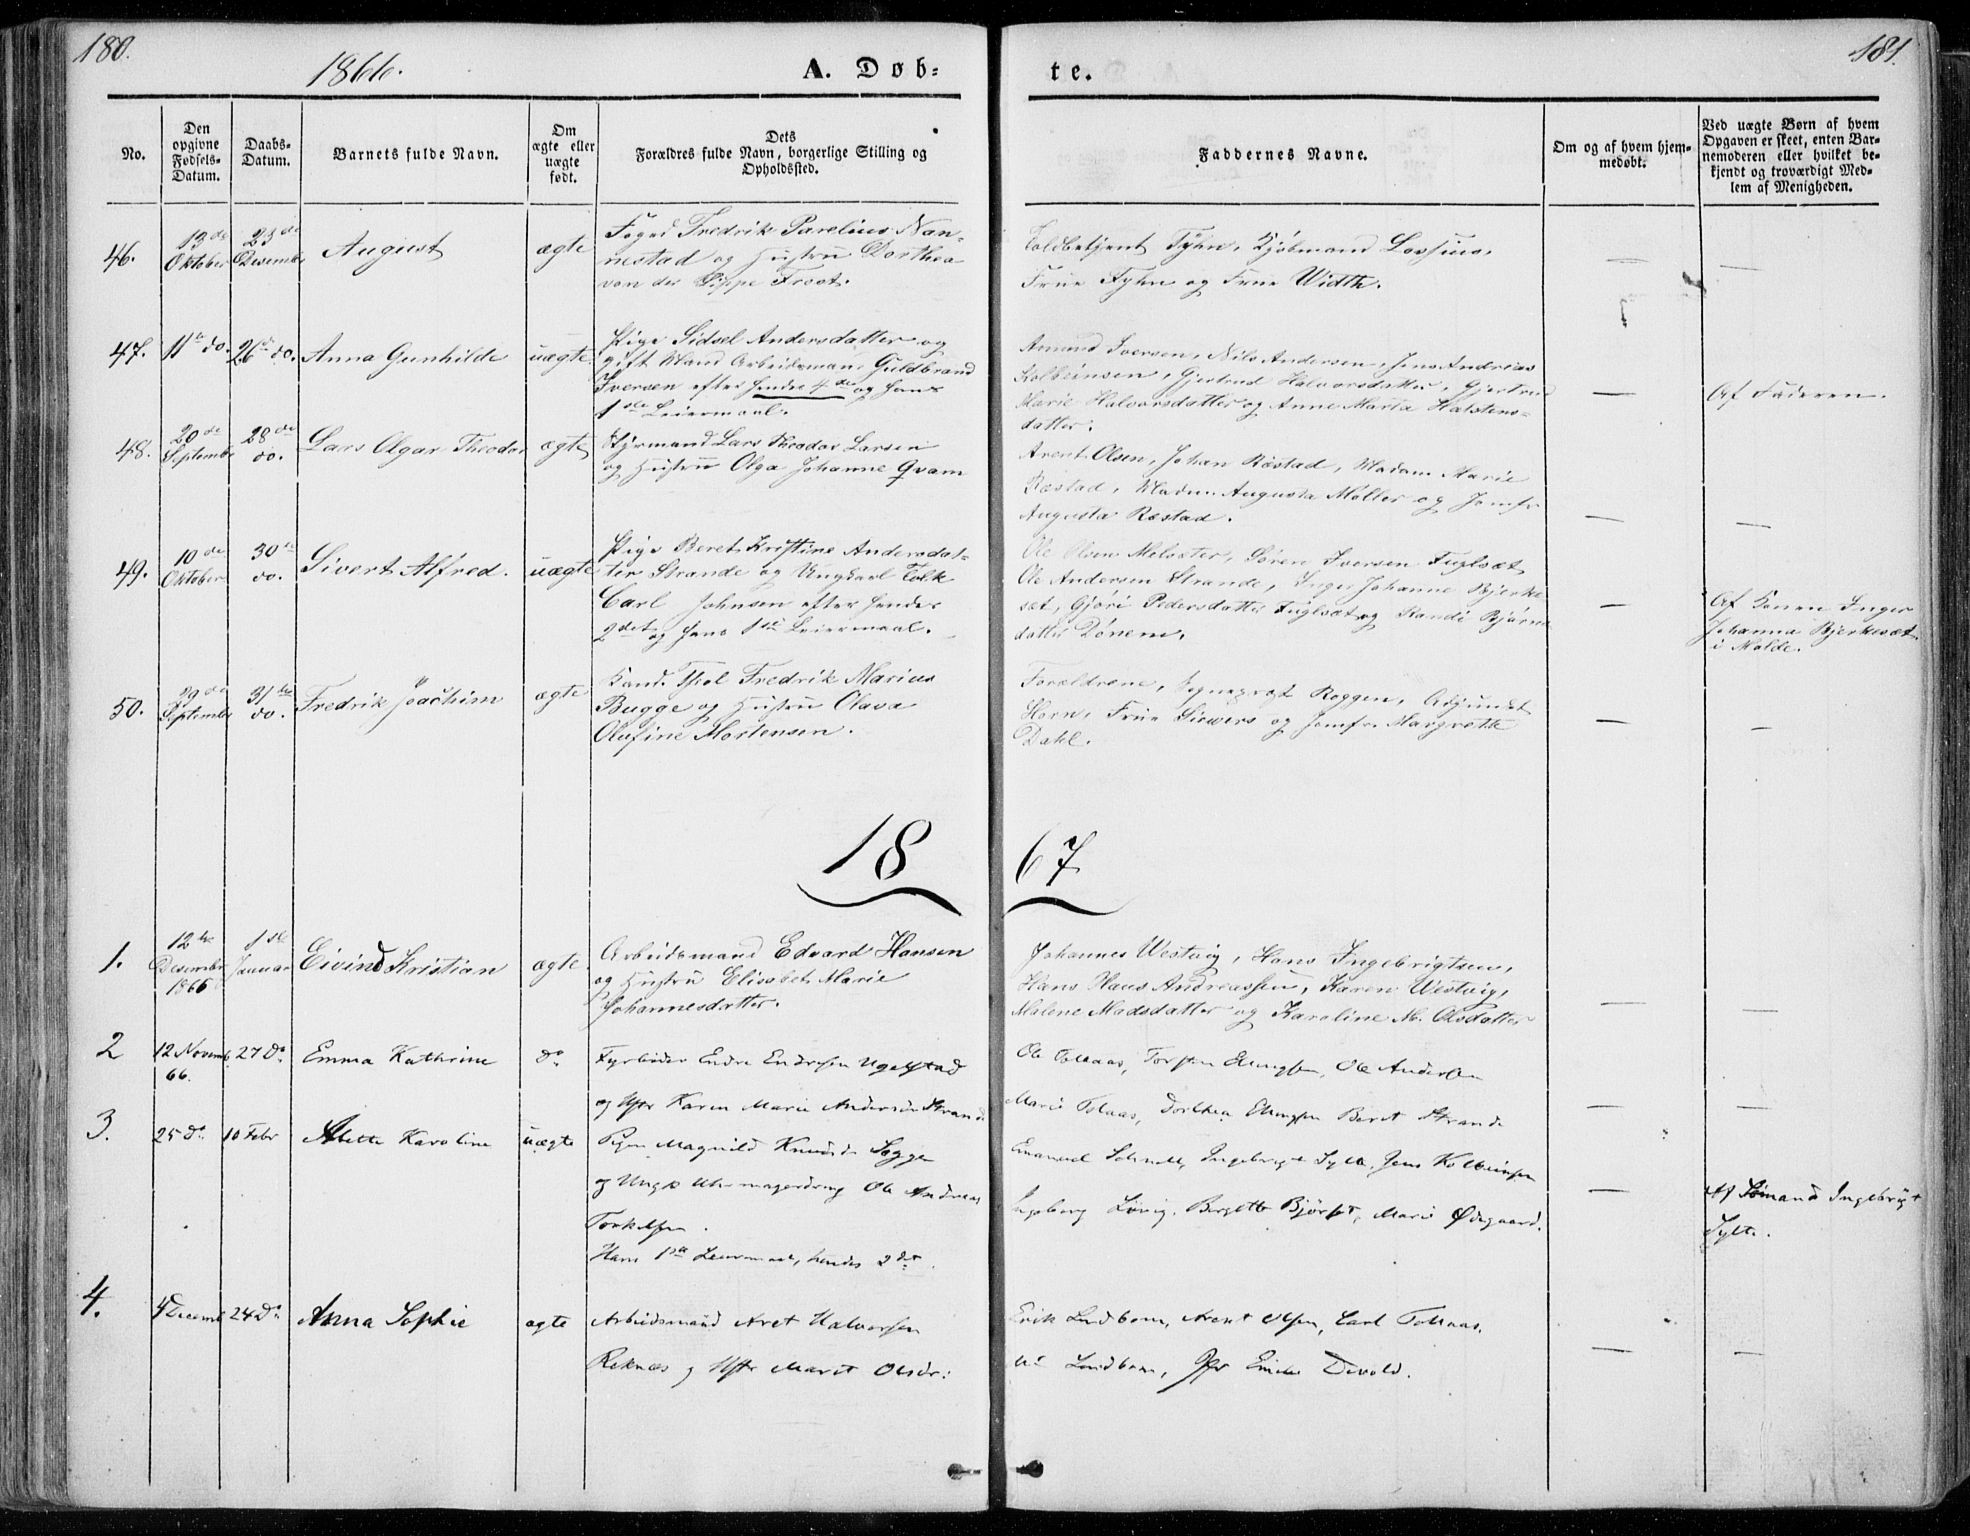 180.
1866.
A. Døb-
te.
181.
No.
Den opgivne Fødsels-Datum.
Daabs-Datum.
Barnets fulde Navn.
Om ægte eller uægte født.
Dets Forældres fulde Navn, borgerlige Stilling og Opholdssted.
Faddernes Navne.
Om og af hvem hjem-medøbt.
Ved uægte Børn af hvem Opgaven er skeet, enten Bar-nemoderen eller hvilket be-kjendt og troværdigt Med-lem af Menigheden.
46.
13de Oktober
23de Desembr
August
ægte
Foged Fredrik Parelius Nan-
nestad og Hustru Dorthea
von der Lippe Frost.
Toldbetjent Fyhn, Kjøbmand Lossius,
Frue Fyhn og Frue Width.
—
—
47.
11te do.
26de do.
Anna Gunhilde
uægte
Pige Sidsel Andersdatter og
gift Mand Arbeidsmand Guldbrand
Iversen efter hendes 4de og hans
1ste Leiermaal.
Amund Iversen, Nils Andersen, Jens Andreas
Kolbeinsen, Gjertrud Halvorsdatter, Gjertrud
Marie Halvorsdatter og Anne Marta Halstens-
datter.
—
Af Faderen.
48.
20de Septembr
28de do.
Lars Olgar Theodor
ægte
Styrmand Lars Theodor Larsen
og Hustru Olga Johanne Qvam
Arent Olsen, Johan Røstad, Madam Marie
Røstad, Madm. Augusta Møller og Jomfr
Augusta Røstad.
—
—
49.
10de Oktober
30te do.
Sivert Alfred.
uægte
Pige Beret Kristine Andersdat-
ter Strande og Ungkarl Falk
Carl Johnsen efter hendes
2det og hans 1ste Leiermaal.
Ole Olsen Melsæter, Søren Iversen Fuglset
Ole Andersen Strande, Inger Johanne Bjerke-
set, Gjøri Pedersdatter Fuglset og Randi Bjørns-
datter Dønem.
—
Af Konen Inger
Johanna Bjerkeset
i Molde.
50.
29de Septembr
31te do.
Fredrik Joachim
ægte
Kand. Theol Fredrik Marius
Bugge og Hustru Olava
Olufine Mortensen.
Forældrene, Sognepræst Roggen, Adjunkt
Horn, Frue Siewers og Jomfr. Margrethe
Dahl.
—
—
18 67
1.
12te Desembr 1866
1ste Januar
Eivind Kristian
ægte
Arbeidsmand Edvard Hansen
og Hustru Elisabet Marie
Johannesdatter.
Johannes Westvig, Hans Ingebrigtsen,
Hans Haus Andreassen, Karen Westvig,
Malene Madsdatter og Karoline M. Olsdatter
—
—
2
12 Novemb 66.
27 Do.
Emma Kathrine
do
Fyrbøder Endre Endresen Ugelstad
og Hstr Karen Marie Andersdr Strande
Ole Tolaas, Torsten Elingsen, Ole Andersen
Marie Tolaas, Dorthea Elingsen Beret Strande
—
—
3.
25 do.
10 Febr
Alette Karoline
uægte
Pigen Magnild Knudsdr Sogge
og Ungk Uhrmagerdreng Ole Andreas
Torkelsen.
Hans 1ste Leiermaal, hendes 2det.
Emanuel Schnell, Ingebrigt Sylte, Jens Kolbeinsen
Ingeborg Løvig. Bergitte Bjørset, Marie Ødegaard.
—
Af Sømand Ingebrigt
Sylte.
4.
4 Decemb
24 Do
Anna Sophie
ægte
Arbeidsmand Aret Halvorsen
Reknes og Hstr Marit Olsdr:
Erik Lindbom, Arent Olsen, Carl Tolaas.
Lindbom, Emilie Devold.
—
—